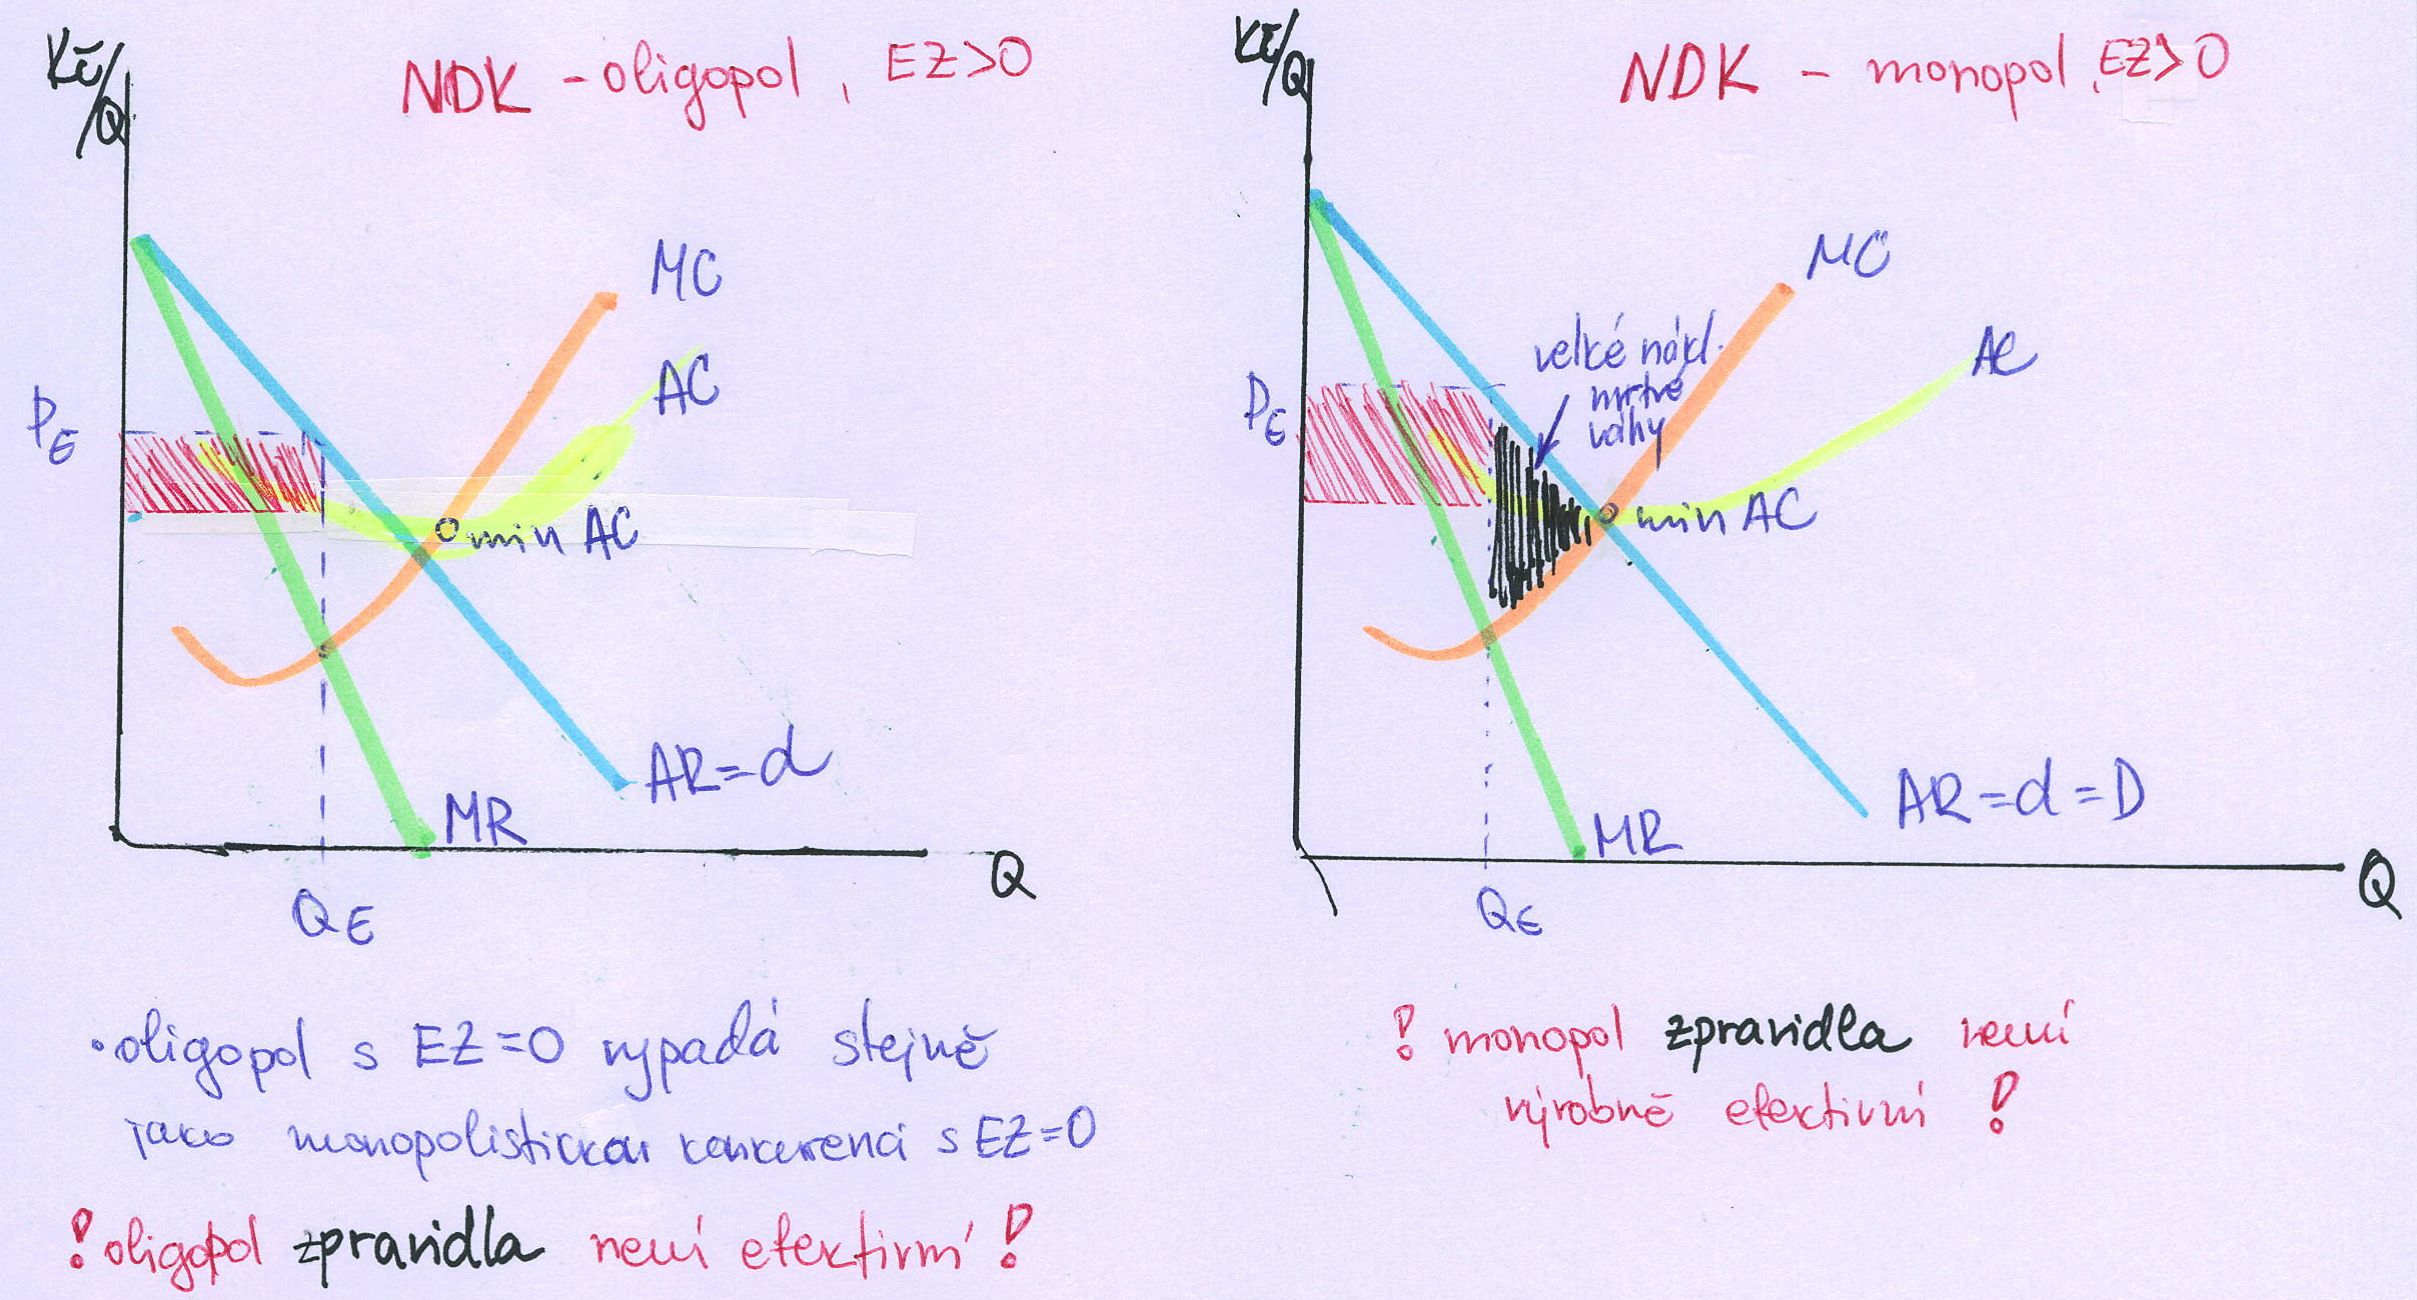 Kč/Q
NDK - oligopol, EZ>0
MC
AC
PE
min AC
AR=d
MR
Q
QE
• oligopol s EZ=0 vypadá stejně
jako monopolistickou konkurenci s EZ=0
! oligopol zpravidla není efektivní !
Kč/Q
NDK - monopol, EZ>0
MC
AC
velké nákl.
mrtvé
váhy
PE
min AC
AR=d=D
MR
Q
QE
! monopol zpravidla není
výrobně efektivní !